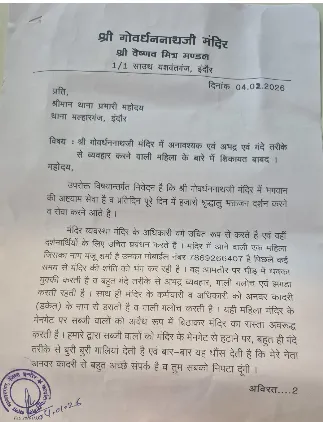 श्री गोवर्धननाथजी मंदिर
श्री वैष्णव मित्र मण्डल
1/1 साउथ यशवंतगंज, इंदौर
दिनांक 04.02.2026
प्रति,
श्रीमान थाना प्रभारी महोदय
थाना मल्हारगंज, इंदौर
विषय : श्री गोवर्धननाथजी मंदिर में अनावश्यक एवं अभद्र एवं गंदे तरीके
से व्यवहार करने वाली महिला के बारे में शिकायत बाबद ।
महोदय,
उपरोक्त विषयान्तर्गत निवेदन है कि श्री गोवर्धननाथजी मंदिर में भगवान
की अष्टयाम सेवा है व प्रतिदिन पूरे दिन में हजारो श्रृद्धालु भक्तजन दर्शन करने
व सेवा करने आते है ।
मंदिर व्यवस्था मंदिर के अधिकारी वर्ग उचित रूप से करते है एवं वही
दर्शनार्थियों के लिए उचित प्रबंधन करते है । मंदिर में आने वाली एक महिला
जिसका नाम मंजू शर्मा है उनका मोबाईल नंबर 7869266407 है पिछले कई
समय से मंदिर की शांति को भंग कर रही है । वह आमतौर पर भीड़ में धक्का
मुक्की करती है व बहुत गंदे तरीके से अभद्र व्यवहार, गाली गलोच एवं झगडा
करती रहती है । साथ ही मंदिर के कर्मचारी व अधिकारी को अनवर कादरी
(डकेत) के नाम से डराती है व गाली गलोच करती है । यही महिला मंदिर के
मेनगेट पर सब्जी वालों को अवैध रूप में बिठाकर मंदिर का रास्ता अवरूद्ध
करती है । हमारे द्वारा सब्जी वालों को मंदिर के मेनगेट से हटाने पर, बहुत ही गंदे
तरीके से बुरी बुरी गालियां देती है एवं बार–बार यह धौंस देती है कि मेरे नेता
अनवर कादरी से बहुत अच्छे संपर्क है व तुम सबको निपटा दूंगी ।
अविरत....2